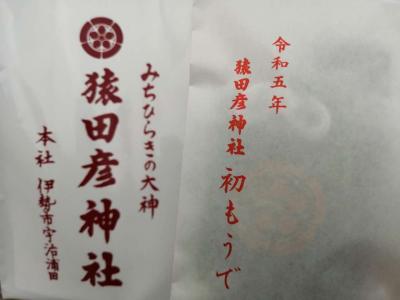 みちひらきの大神
猿田彦神社
本社 伊勢市宇治浦田
令和五年
猿田彦神社
初もうで